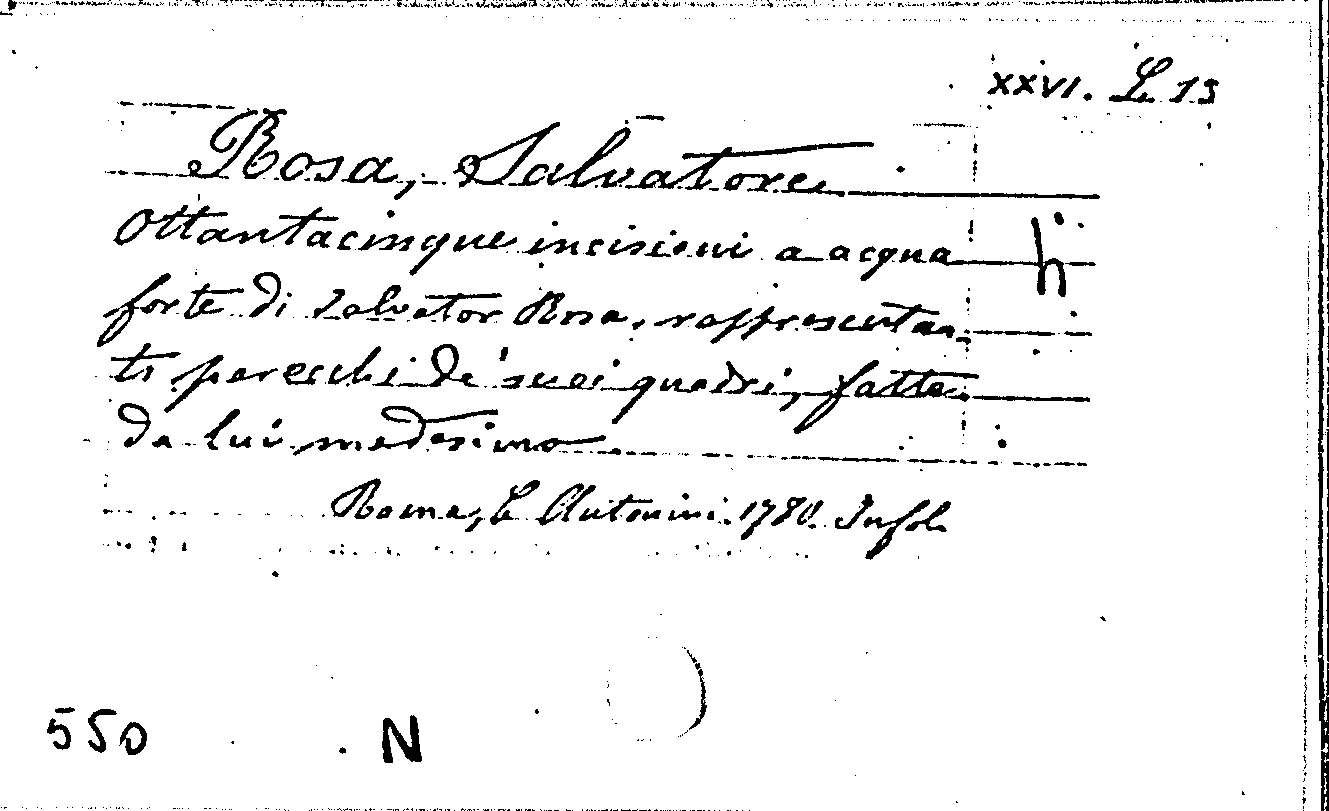 XXVI. L. 15
Rosa, Salvatore
Ottantacinque incisioni a acqua
h
forte di Salvator Rosa, rappresentan-
ti parecchi de' suoi quadri, fatte
da lui medesimo
Roma, C. Antonini. 1780. In fol.
550 N